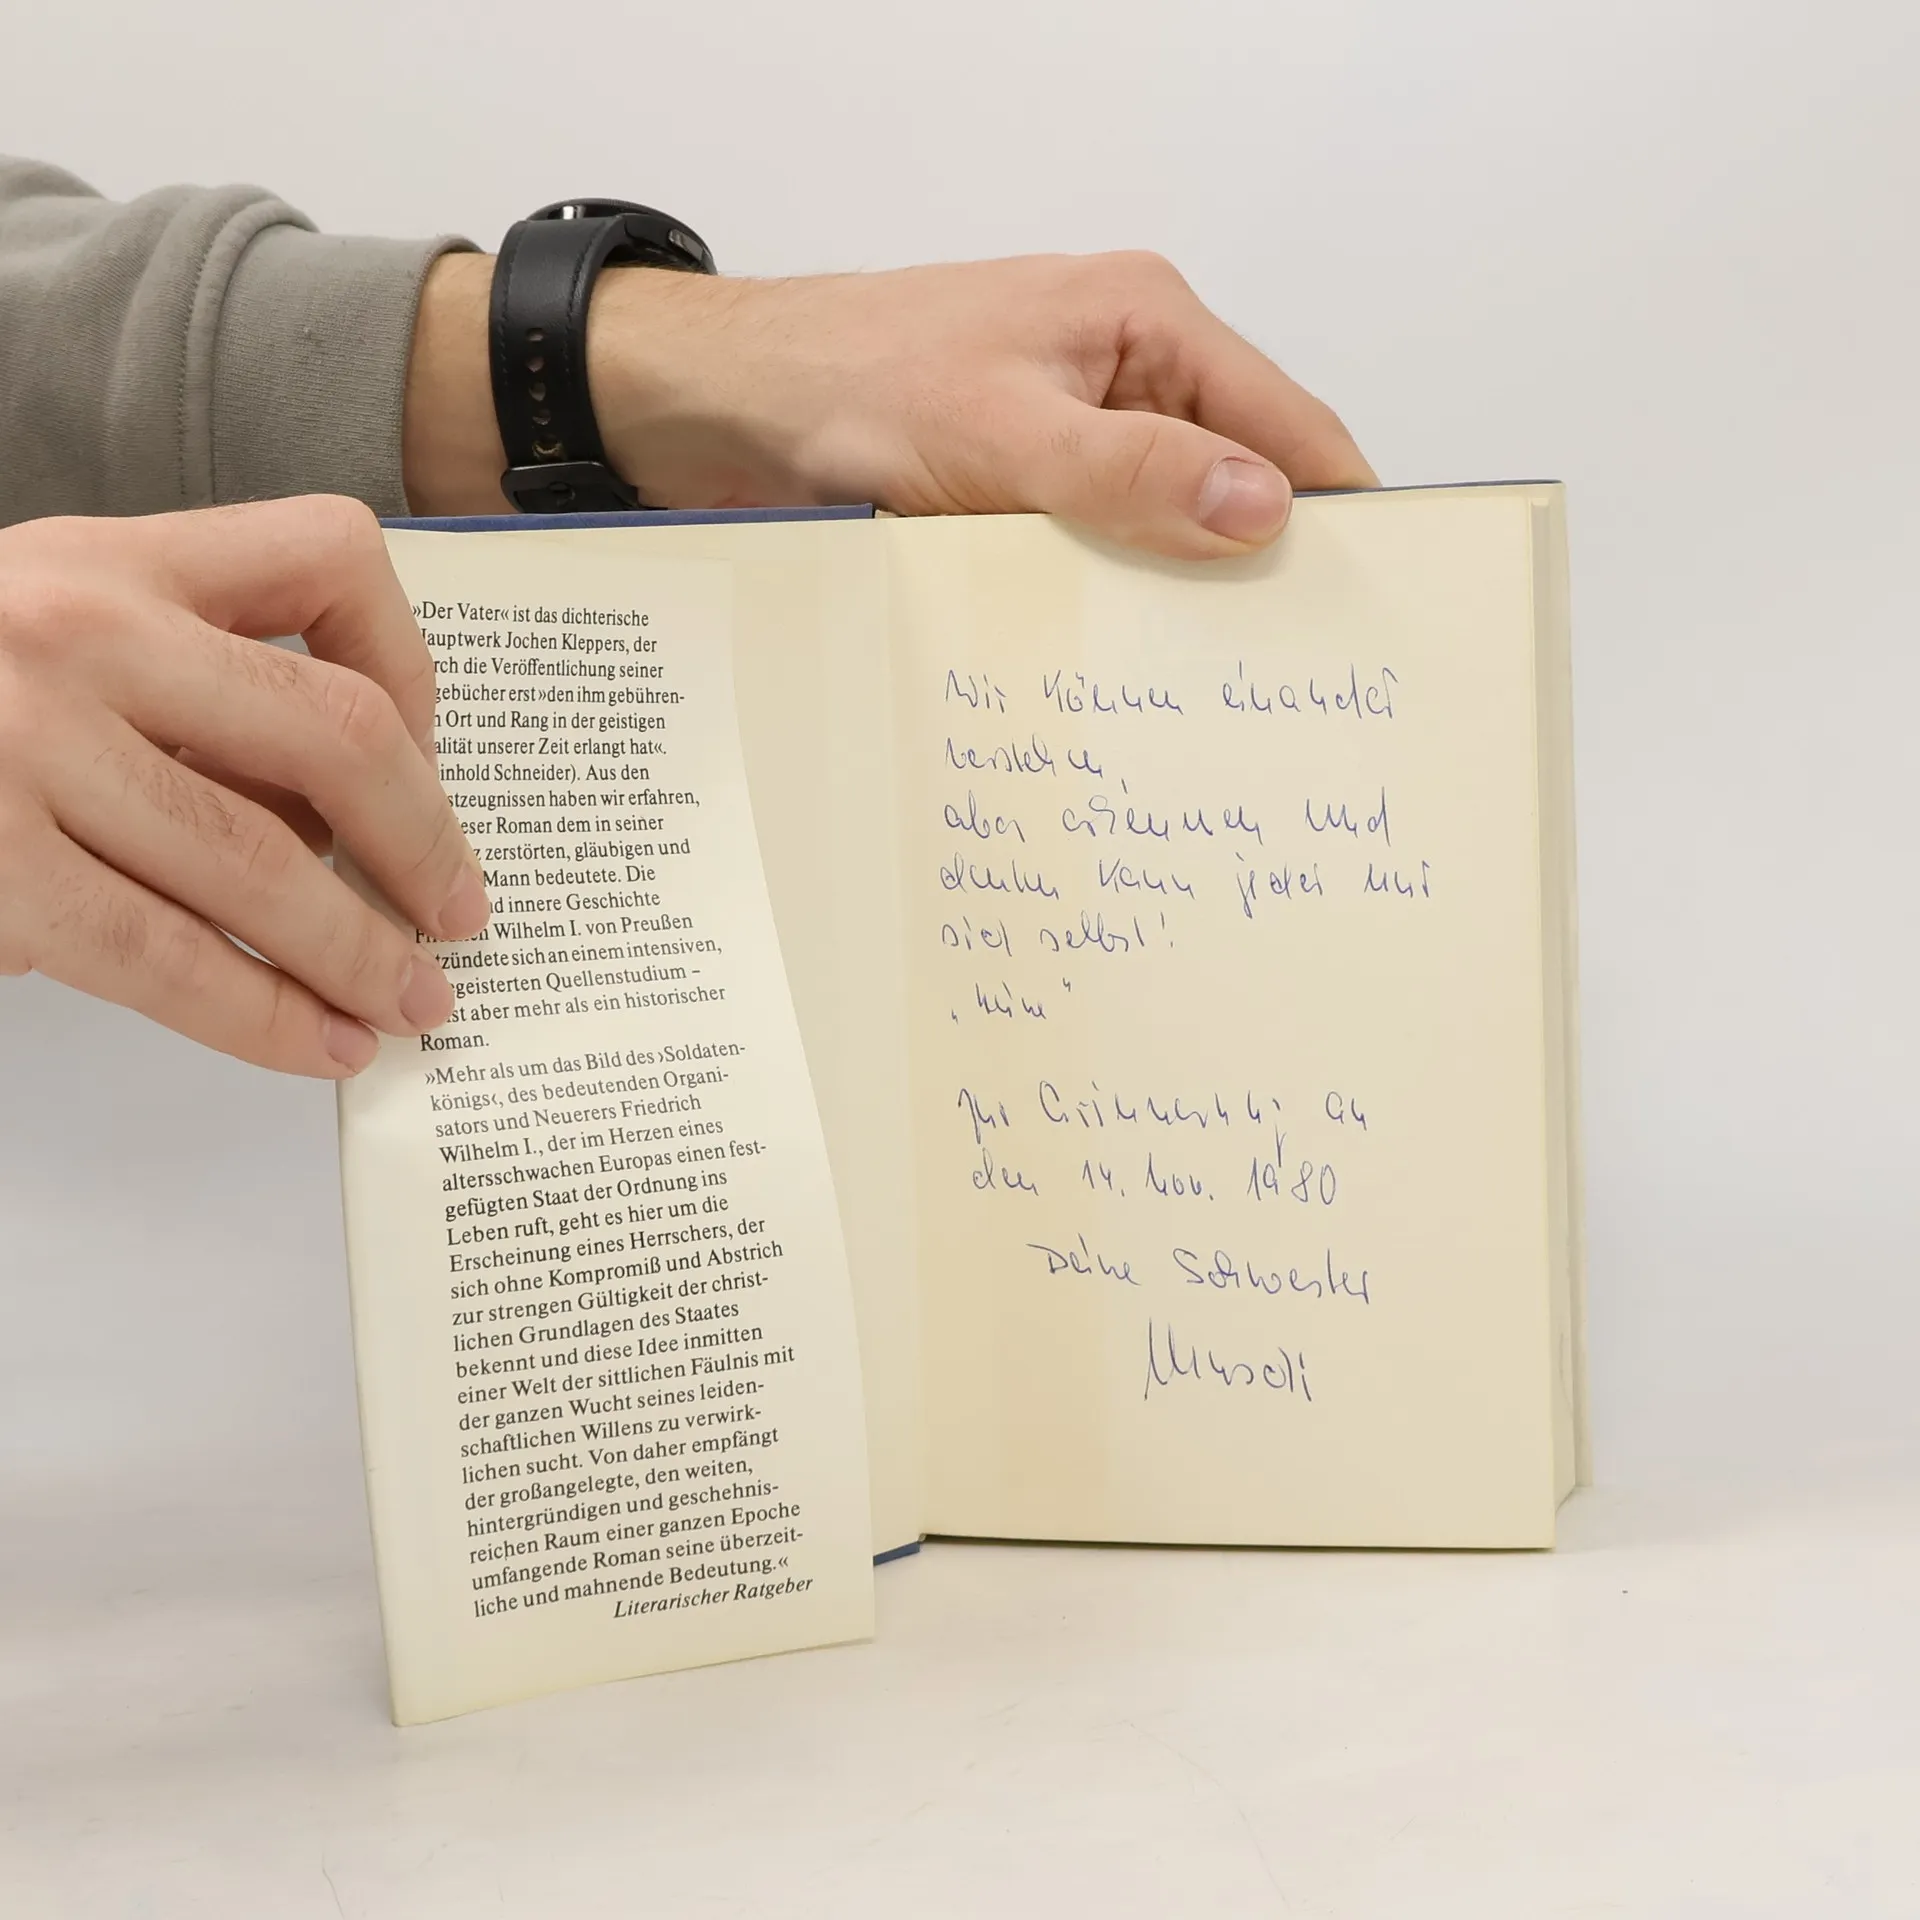 »Der Vater« ist das dichterische
auptwerk Jochen Kleppers, der
rch die Veröffentlichung seiner
gebücher erst »den ihm gebühren-
n Ort und Rang in der geistigen
alität unserer Zeit erlangt hat«.
inhold Schneider). Aus den
stzeugnissen haben wir erfahren,
eser Roman dem in seiner
z zerstörten, gläubigen und
Mann bedeutete. Die
d innere Geschichte
Wilhelm I. von Preußen
tzündete sich an einem intensiven,
egeisterten Quellenstudium –
st aber mehr als ein historischer
Roman.
»Mehr als um das Bild des ›Soldaten-
königs‹, des bedeutenden Organi-
sators und Neuerers Friedrich
Wilhelm I., der im Herzen eines
altersschwachen Europas einen fest-
gefügten Staat der Ordnung ins
Leben ruft, geht es hier um die
Erscheinung eines Herrschers, der
sich ohne Kompromiß und Abstrich
zur strengen Gültigkeit der christ-
lichen Grundlagen des Staates
bekennt und diese Idee inmitten
einer Welt der sittlichen Fäulnis mit
der ganzen Wucht seines leiden-
schaftlichen Willens zu verwirk-
lichen sucht. Von daher empfängt
der großangelegte, den weiten,
hintergründigen und geschehnis-
reichen Raum einer ganzen Epoche
umfangende Roman seine überzeit-
liche und mahnende Bedeutung.«
Literarischer Ratgeber
Wir können einander
verstehen,
aber erkennen und
denken kann jeder nur
sich selbst!
Zur Erinnerung an
den 14. Nov. 1980
Deine Schwester